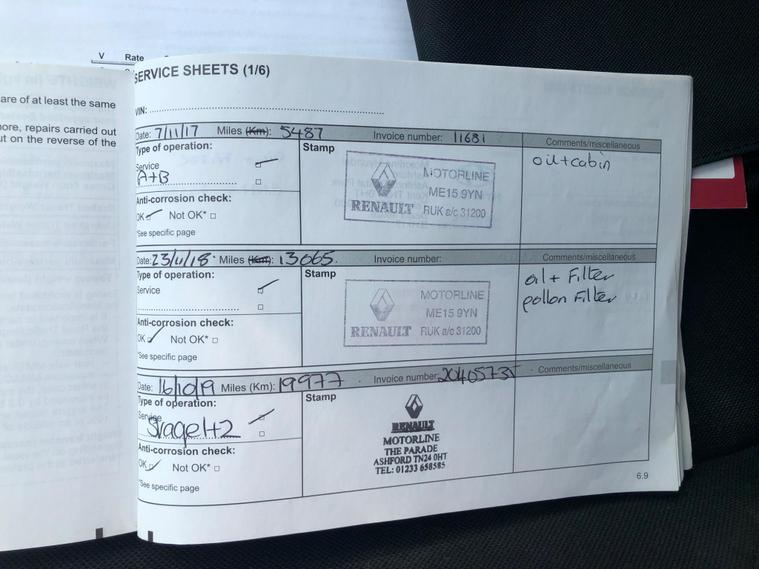 V Rate
are of at least the same
ore, repairs carried out
t on the reverse of the
SERVICE SHEETS (1/6)
VIN:
Date: 7/11/17 Miles (Km): 5487 Invoice number: 11681 Comments/miscellaneous
Type of operation: Stamp oil+cabin
Service
A+B
MOTORLINE
ME15 9YN
RENAULT RUK a/c 31200
Anti-corrosion check:
OK Not OK*
*See specific page
Date: 23/11/18 Miles (Km): 13065. Invoice number: Comments/miscellaneous
Type of operation: Stamp oil + Filter
Service pollon Filter
MOTORLINE
ME15 9YN
RENAULT RUK a/c 31200
Anti-corrosion check:
OK Not OK*
*See specific page
Date: 16/10/19 Miles (Km): 19977 Invoice number: Comments/miscellaneous
Type of operation: Stamp
Service
Stage 1+2
RENAULT
MOTORLINE
THE PARADE
ASHFORD TN24 0HT
TEL: 01233 658585
Anti-corrosion check:
OK Not OK*
*See specific page
6.9